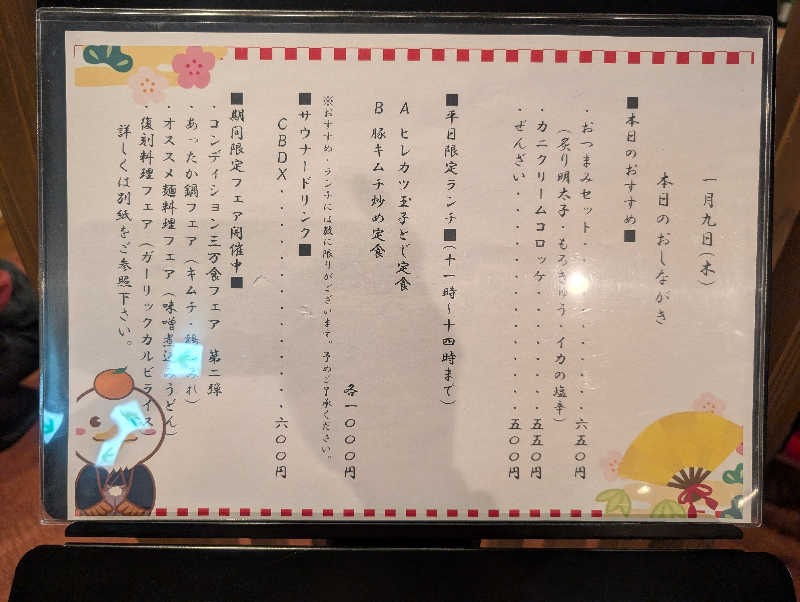 一月九日(木)
本日のおしながき
■本日のおすすめ■
・おつまみセット・・・・・・・・・六五〇円
(炙り明太子・もろきゅう・イカの塩辛)
・カニクリームコロッケ・・・・・・・五五〇円
・ぜんざい・・・・・・・・・・・・五〇〇円
■平日限定ランチ■(十一時~十四時まで)
A ヒレカツ玉子とじ定食
B 豚キムチ炒め定食
各一〇〇〇円
※おすすめ・ランチには数に限りがございます。予めご了承ください。
■サウナードリンク■
CBDX・・・・・・・・・・・・・六〇〇円
■期間限定フェア開催中■
・コンディション三万食フェア 第二弾
・あったか鍋フェア(キムチ・鶏つみれ)
・オススメ麺料理フェア(味噌煮込みうどん)
・復刻料理フェア(ガーリックカルビライス
詳しくは別紙をご参照下さい。